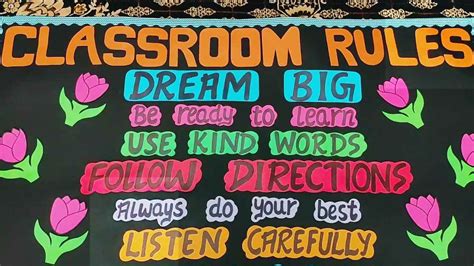 CLASSROOM RULES
DREAM BIG
Be ready to learn
USE KIND WORDS
FOLLOW DIRECTIONS
Always do your best
LISTEN CAREFULLY